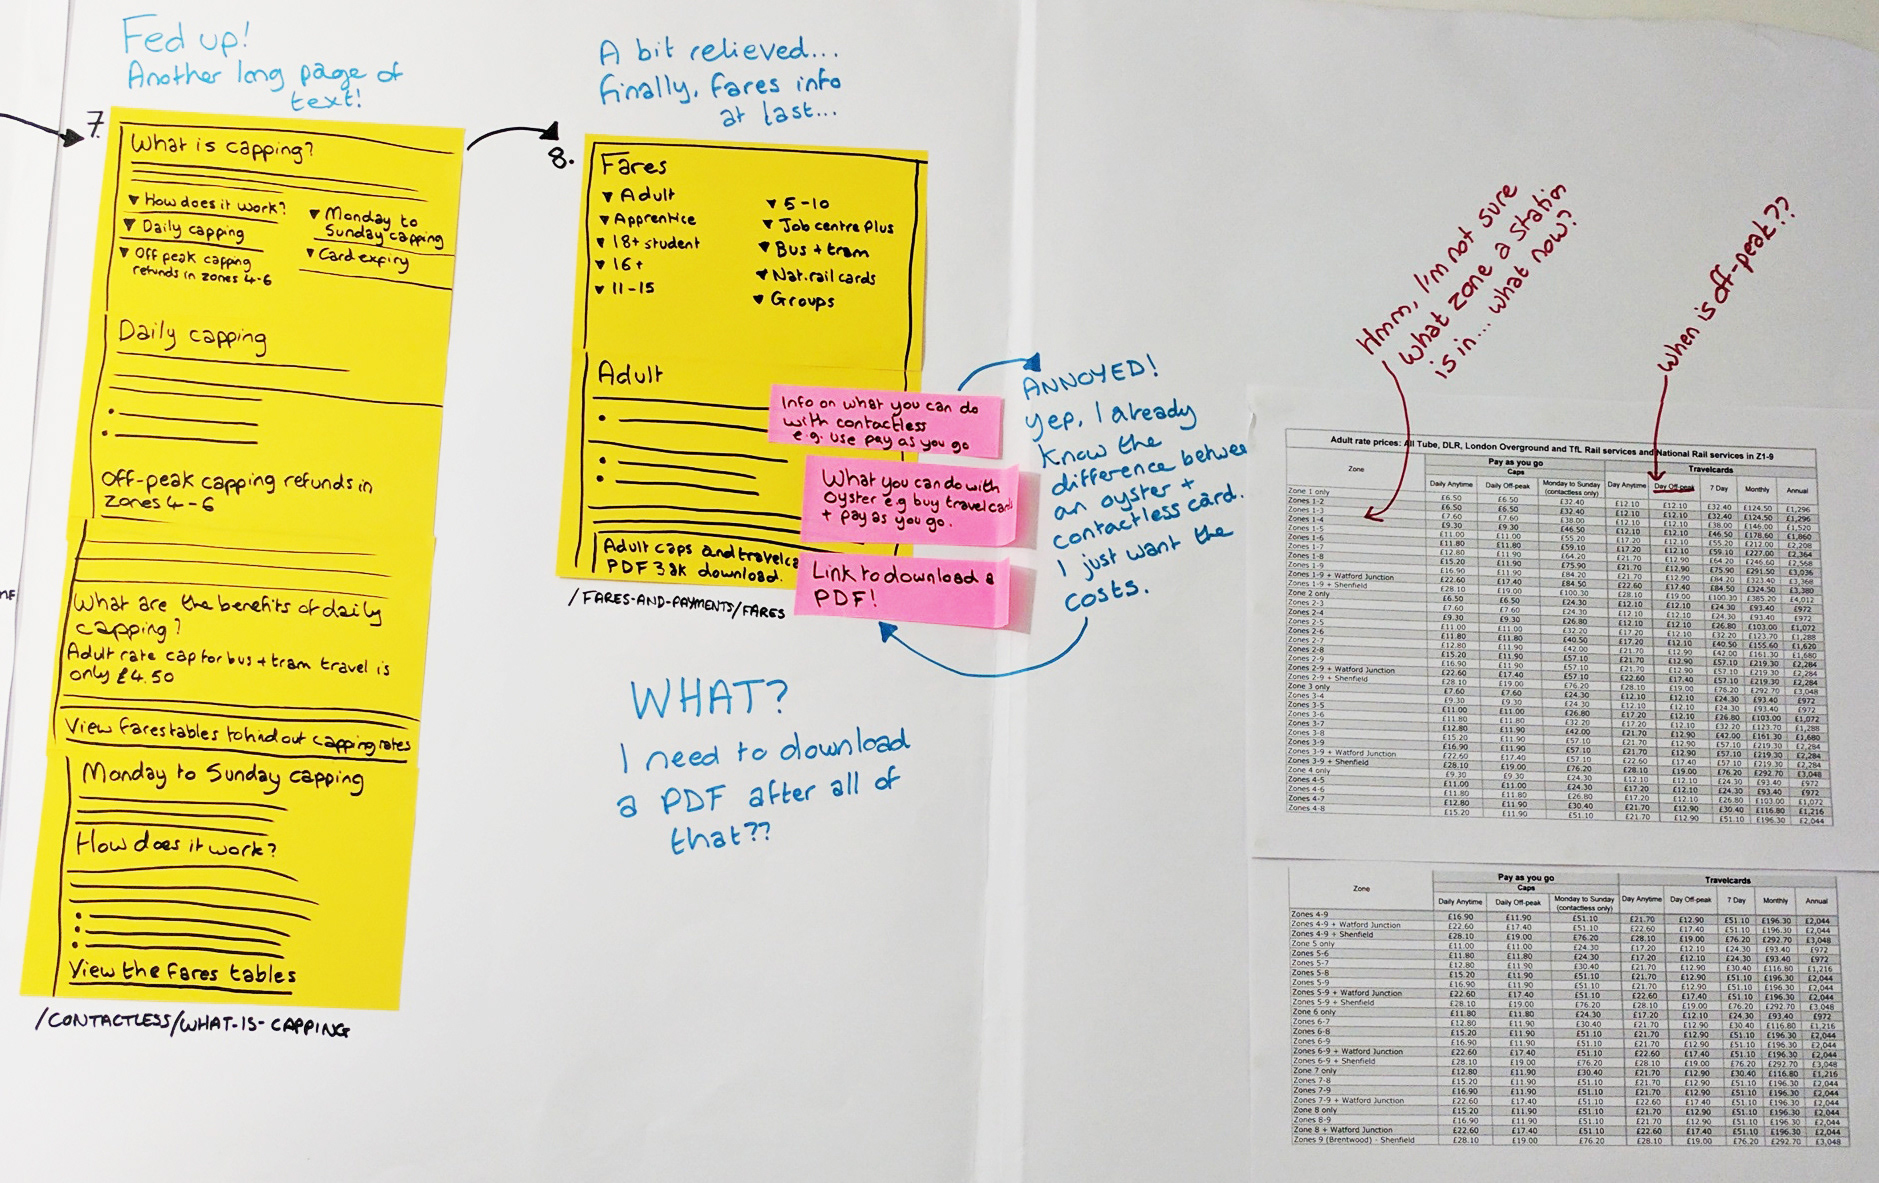 Fed up!
Another long page of
text!
7.
What is capping?
▼ How does it work?
▼ Daily capping
▼ Off peak capping
refunds in zones 4-6
▼ Monday to
Sunday capping
▼ Card expiry
Daily capping
Off-peak capping refunds in
zones 4-6
What are the benefits of daily
capping?
Adult rate cap for bus + tram travel is
only £4.50
View Farestables to find out capping rates
Monday to Sunday capping
How does it work?
View the fares tables
/CONTACTLESS/WHAT-IS-CAPPING
A bit relieved...
finally, fares info
at last...
8.
Fares
▼ Adult
▼ Apprentice
▼ 18+ student
▼ 16+
▼ 11-15
▼ 5-10
▼ Job centre plus
▼ Bus + tram
▼ Nat.rail cards
▼ Groups
Adult
Adult caps and travelca
PDF 38k download.
/FARES-AND-PAYMENTS/FARES
Info on what you can do
with contactless
e.g. use pay as you go
What you can do with
Oyster e.g buy travelcard
+ pay as you go.
Link to download a
PDF!
ANNOYED!
yep, I already
know the
difference between
an oyster +
contactless card.
I just want the
costs.
WHAT?
I need to download
a PDF after all of
that??
Hmm, I'm not sure
what zone a station
is in... what now?
When is off-peak??
Adult rate prices: All Tube, DLR, London Overground and TfL Rail services and National Rail services in Z1-9
Zone Pay as you go Travelcards
Caps
Daily Anytime Daily Off-peak Monday to Sunday (contactless only) Day Anytime Day Off-peak 7 Day Monthly Annual
Zone 1 only £6.50 £6.50 £32.40 £12.10 £12.10 £32.40 £124.50 £1,296
Zones 1-2 £6.50 £6.50 £32.40 £12.10 £12.10 £32.40 £124.50 £1,296
Zones 1-3 £7.60 £7.60 £38.00 £12.10 £12.10 £38.00 £146.00 £1,520
Zones 1-4 £9.30 £9.30 £46.50 £12.10 £12.10 £46.50 £178.60 £1,860
Zones 1-5 £11.00 £11.00 £55.20 £17.20 £12.10 £55.20 £212.00 £2,208
Zones 1-6 £11.80 £11.80 £59.10 £17.20 £12.10 £59.10 £227.00 £2,364
Zones 1-7 £12.80 £11.90 £64.20 £21.70 £12.90 £64.20 £246.60 £2,568
Zones 1-8 £15.20 £11.90 £75.90 £21.70 £12.90 £75.90 £291.50 £3,036
Zones 1-9 £16.90 £11.90 £84.20 £21.70 £12.90 £84.20 £323.40 £3,368
Zones 1-9 + Watford Junction £22.60 £17.40 £84.50 £22.60 £17.40 £84.50 £324.50 £3,380
Zones 1-9 + Shenfield £28.10 £19.00 £100.30 £28.10 £19.00 £100.30 £385.20 £4,012
Zone 2 only £6.50 £6.50 £24.30 £12.10 £12.10 £24.30 £93.40 £972
Zones 2-3 £7.60 £7.60 £24.30 £12.10 £12.10 £24.30 £93.40 £972
Zones 2-4 £9.30 £9.30 £26.80 £12.10 £12.10 £26.80 £103.00 £1,072
Zones 2-5 £11.00 £11.00 £32.20 £17.20 £12.10 £32.20 £123.70 £1,288
Zones 2-6 £11.80 £11.80 £40.50 £17.20 £12.10 £40.50 £155.60 £1,620
Zones 2-7 £12.80 £11.90 £42.00 £21.70 £12.90 £42.00 £161.30 £1,680
Zones 2-8 £15.20 £11.90 £57.10 £21.70 £12.90 £57.10 £219.30 £2,284
Zones 2-9 £16.90 £11.90 £57.10 £21.70 £12.90 £57.10 £219.30 £2,284
Zones 2-9 + Watford Junction £22.60 £17.40 £57.10 £22.60 £17.40 £57.10 £219.30 £2,284
Zones 2-9 + Shenfield £28.10 £19.00 £76.20 £28.10 £19.00 £76.20 £292.70 £3,048
Zone 3 only £7.60 £7.60 £24.30 £12.10 £12.10 £24.30 £93.40 £972
Zones 3-4 £9.30 £9.30 £24.30 £12.10 £12.10 £24.30 £93.40 £972
Zones 3-5 £11.00 £11.00 £26.80 £17.20 £12.10 £26.80 £103.00 £1,072
Zones 3-6 £11.80 £11.80 £32.20 £17.20 £12.10 £32.20 £123.70 £1,288
Zones 3-7 £12.80 £11.90 £42.00 £21.70 £12.90 £42.00 £161.30 £1,680
Zones 3-8 £15.20 £11.90 £57.10 £21.70 £12.90 £57.10 £219.30 £2,284
Zones 3-9 £16.90 £11.90 £57.10 £21.70 £12.90 £57.10 £219.30 £2,284
Zones 3-9 + Watford Junction £22.60 £17.40 £57.10 £22.60 £17.40 £57.10 £219.30 £2,284
Zones 3-9 + Shenfield £28.10 £19.00 £76.20 £28.10 £19.00 £76.20 £292.70 £3,048
Zone 4 only £9.30 £9.30 £24.30 £12.10 £12.10 £24.30 £93.40 £972
Zones 4-5 £11.00 £11.00 £24.30 £17.20 £12.10 £24.30 £93.40 £972
Zones 4-6 £11.80 £11.80 £26.80 £17.20 £12.10 £26.80 £103.00 £1,072
Zones 4-7 £12.80 £11.90 £30.40 £21.70 £12.90 £30.40 £116.80 £1,216
Zones 4-8 £15.20 £11.90 £51.10 £21.70 £12.90 £51.10 £196.30 £2,044
Zone Pay as you go Travelcards
Caps
Daily Anytime Daily Off-peak Monday to Sunday (contactless only) Day Anytime Day Off-peak 7 Day Monthly Annual
Zones 4-9 £16.90 £11.90 £51.10 £21.70 £12.90 £51.10 £196.30 £2,044
Zones 4-9 + Watford Junction £22.60 £17.40 £51.10 £22.60 £17.40 £51.10 £196.30 £2,044
Zones 4-9 + Shenfield £28.10 £19.00 £76.20 £28.10 £19.00 £76.20 £292.70 £3,048
Zone 5 only £11.00 £11.00 £24.30 £17.20 £12.10 £24.30 £93.40 £972
Zones 5-6 £11.80 £11.80 £24.30 £17.20 £12.10 £24.30 £93.40 £972
Zones 5-7 £12.80 £11.90 £30.40 £21.70 £12.90 £30.40 £116.80 £1,216
Zones 5-8 £15.20 £11.90 £51.10 £21.70 £12.90 £51.10 £196.30 £2,044
Zones 5-9 £16.90 £11.90 £51.10 £21.70 £12.90 £51.10 £196.30 £2,044
Zones 5-9 + Watford Junction £22.60 £17.40 £51.10 £22.60 £17.40 £51.10 £196.30 £2,044
Zones 5-9 + Shenfield £28.10 £19.00 £76.20 £28.10 £19.00 £76.20 £292.70 £3,048
Zone 6 only £11.80 £11.80 £24.30 £17.20 £12.10 £24.30 £93.40 £972
Zones 6-7 £12.80 £11.90 £30.40 £21.70 £12.90 £30.40 £116.80 £1,216
Zones 6-8 £15.20 £11.90 £51.10 £21.70 £12.90 £51.10 £196.30 £2,044
Zones 6-9 £16.90 £11.90 £51.10 £21.70 £12.90 £51.10 £196.30 £2,044
Zones 6-9 + Watford Junction £22.60 £17.40 £51.10 £22.60 £17.40 £51.10 £196.30 £2,044
Zones 6-9 + Shenfield £28.10 £19.00 £76.20 £28.10 £19.00 £76.20 £292.70 £3,048
Zone 7 only £12.80 £11.90 £30.40 £21.70 £12.90 £30.40 £116.80 £1,216
Zones 7-8 £15.20 £11.90 £51.10 £21.70 £12.90 £51.10 £196.30 £2,044
Zones 7-9 £16.90 £11.90 £51.10 £21.70 £12.90 £51.10 £196.30 £2,044
Zones 7-9 + Watford Junction £22.60 £17.40 £51.10 £22.60 £17.40 £51.10 £196.30 £2,044
Zone 8 only £15.20 £11.90 £51.10 £21.70 £12.90 £51.10 £196.30 £2,044
Zones 8-9 £16.90 £11.90 £51.10 £21.70 £12.90 £51.10 £196.30 £2,044
Zone 8 + Watford Junction £22.60 £17.40 £51.10 £22.60 £17.40 £51.10 £196.30 £2,044
Zones 9 (Brentwood) - Shenfield £28.10 £19.00 £76.20 £28.10 £19.00 £76.20 £292.70 £3,048